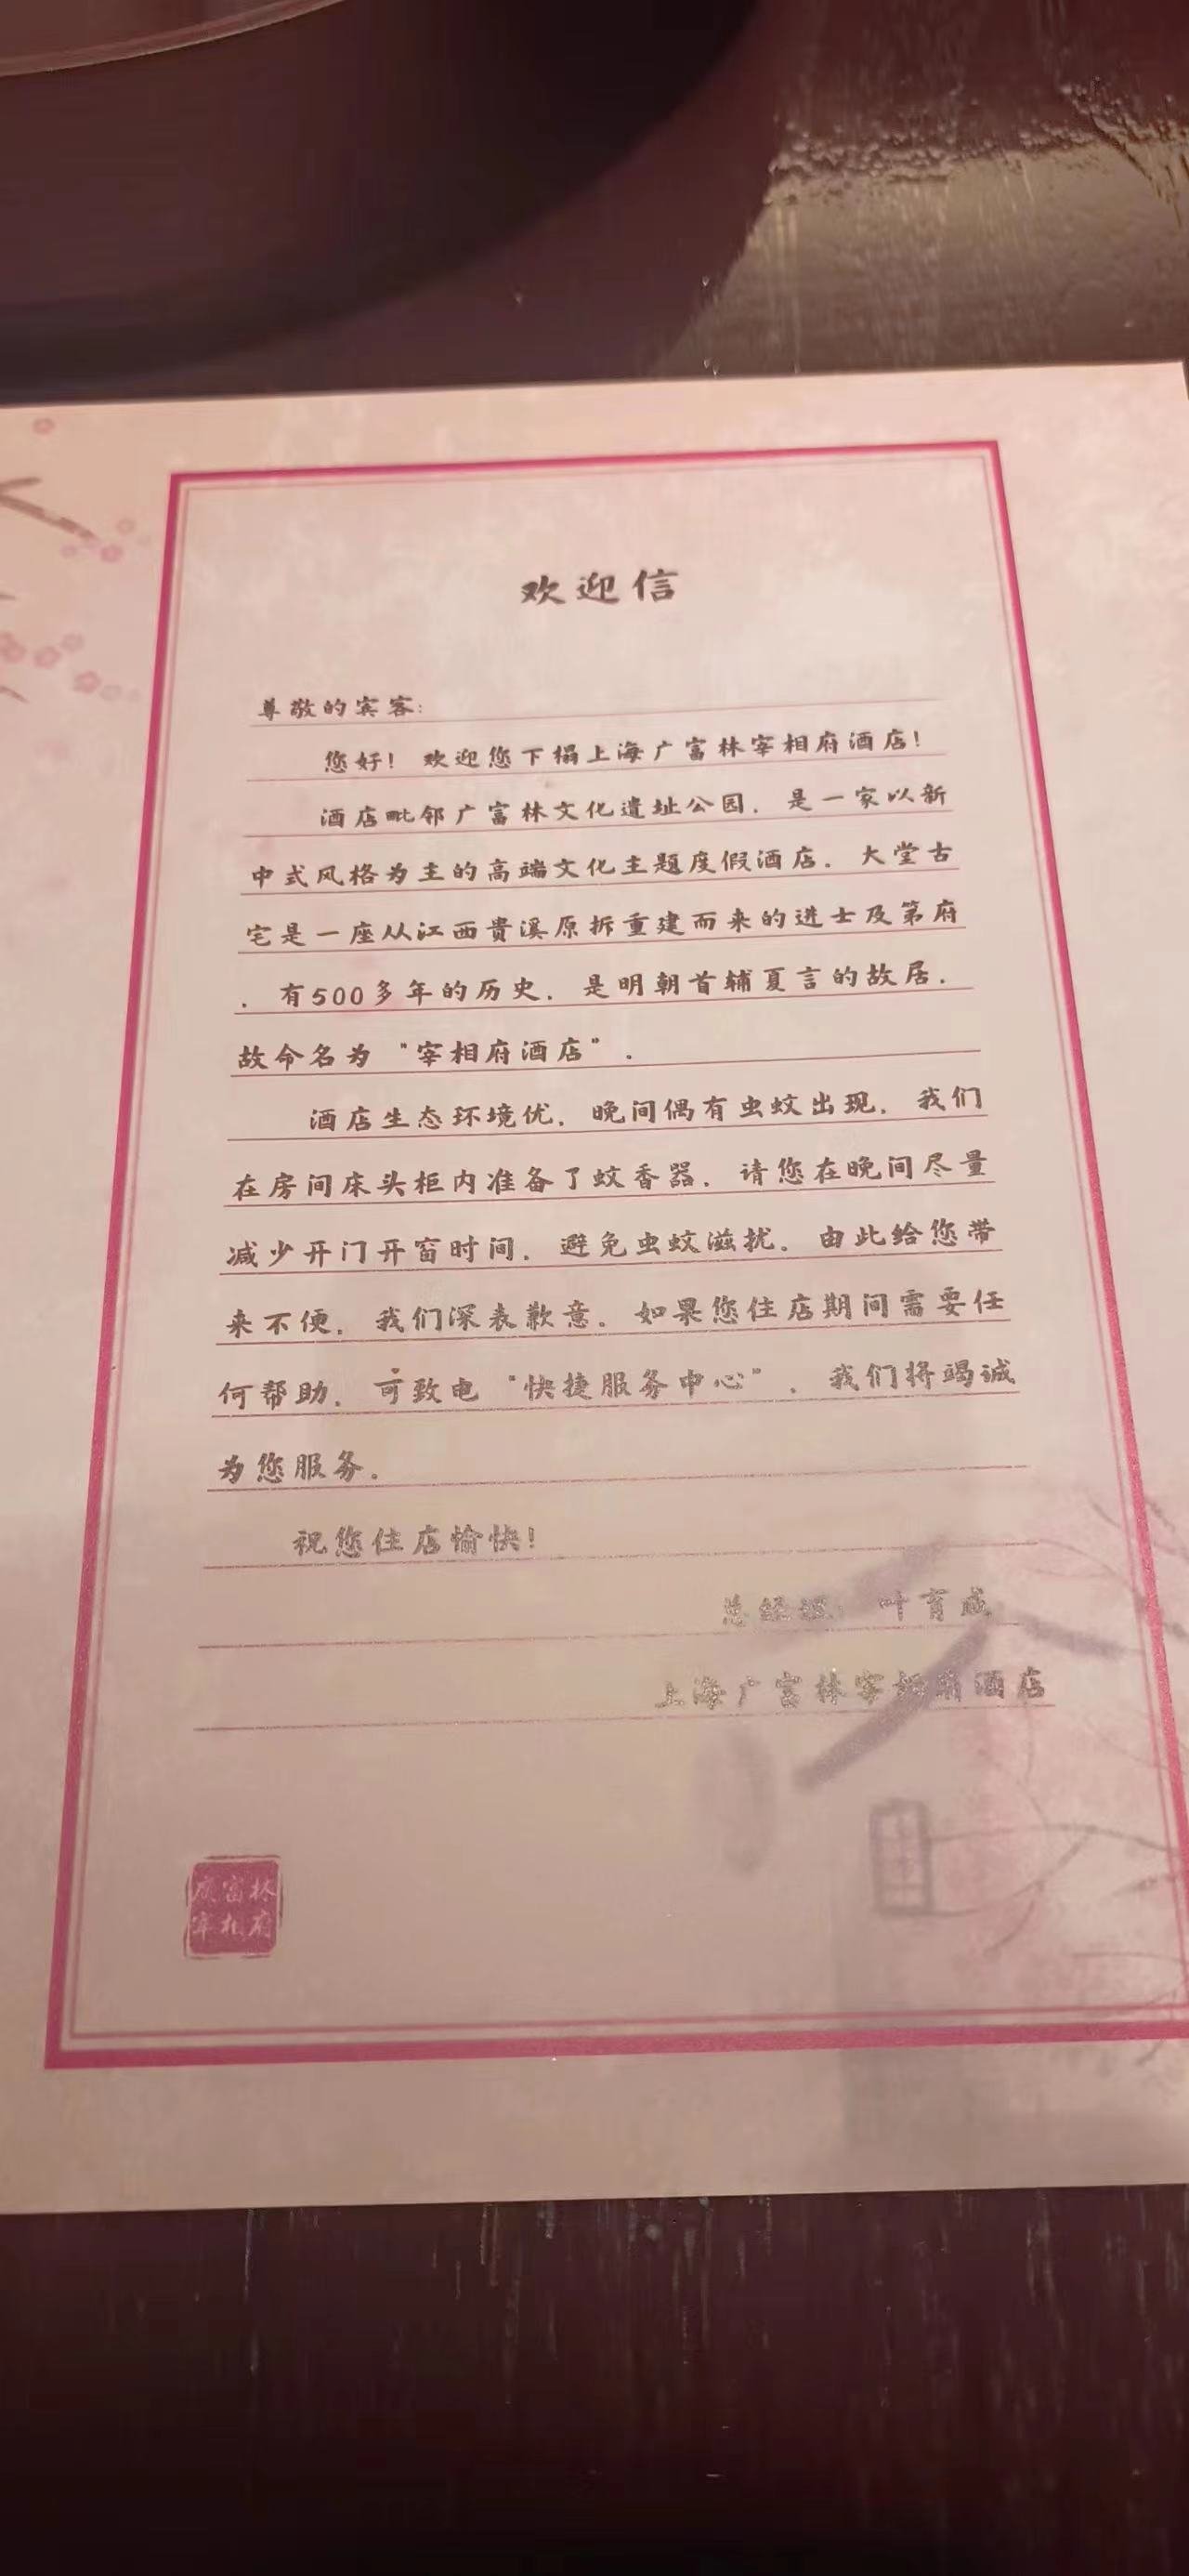 欢迎信
尊敬的宾客：
您好！欢迎您下榻上海广富林宰相府酒店！
酒店毗邻广富林文化遗址公园，是一家以新
中式风格为主的高端文化主题度假酒店。大堂古
宅是一座从江西贵溪原拆重建而来的进士及第府
，有500多年的历史，是明朝首辅夏言的故居，
故命名为“宰相府酒店”。
酒店生态环境优，晚间偶有虫蚊出现，我们
在房间床头柜内准备了蚊香器，请您在晚间尽量
减少开门开窗时间，避免虫蚊滋扰。由此给您带
来不便，我们深表歉意。如果您住店期间需要任
何帮助，可致电“快捷服务中心”，我们将竭诚
为您服务。
祝您住店愉快！
总经理：叶育成
上海广富林宰相府酒店
广富林
宰相府